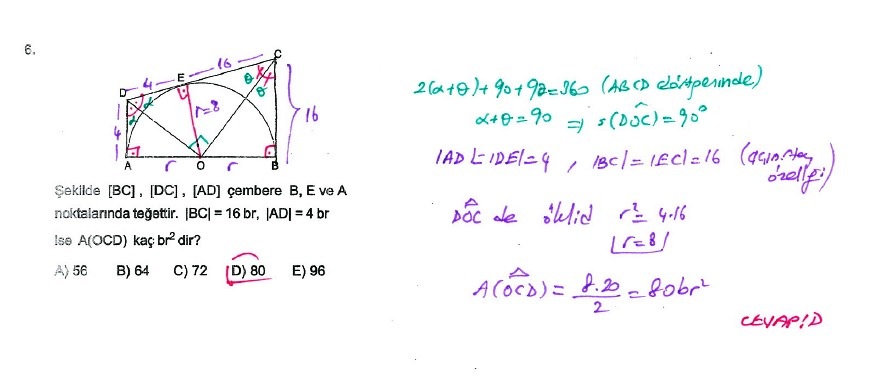 6.
C
16
E
4
D
θ
θ
α
α
r=8
16
4
A
r
O
r
B
Şekilde [BC] , [DC] , [AD] çembere B, E ve A
noktalarında teğettir. |BC| = 16 br, |AD| = 4 br
ise A(OCD) kaç br² dir?
A) 56 B) 64 C) 72 D) 80 E) 96
2(α+θ)+90+90=360 (ABCD dörtgeninde)
α+θ=90 ⇒ s(DOC)=90°
|AD|=|DE|=4 , |BC|=|EC|=16 (açıortay
özelliği)
DOC de öklid r²=4.16
r=8
A(OCD) = 8.20/2 = 80br²
CEVAP:D